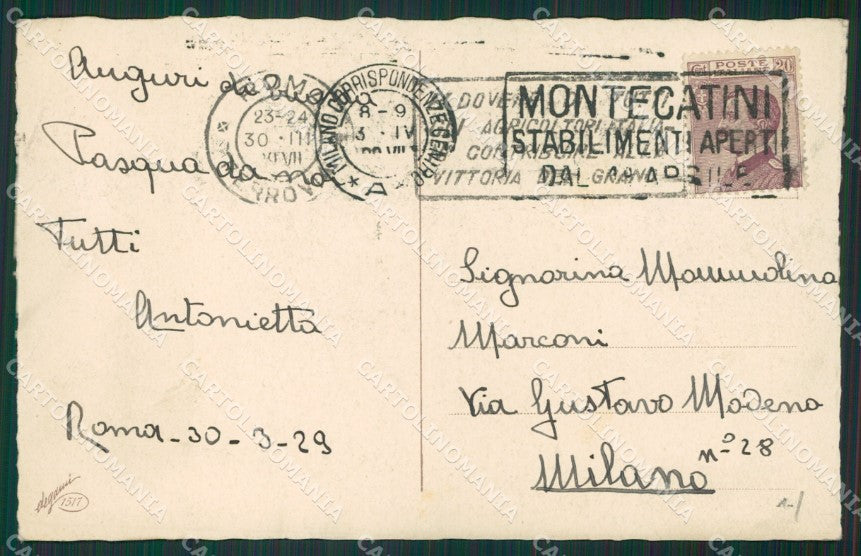 Auguri di Buona
Pasqua da noi
Tutti
Antonietta
Roma - 30 - 3 - 29
degami
1517
ROMA
23-24
30 · III
XVII
FERROVIA
MILANO CORRISPONDENZE CENTRO
8-9
3 · IV
A
È DOVERE DI TUTTI
GLI AGRICOLTORI
CONTRIBUIRE ALLA
VITTORIA DEL GRANO
MONTECATINI
STABILIMENTI APERTI
DAL 1º APRILE
POSTE
ITALIANE
20
Signorina Mammolina
Marconi
Via Gustavo Modena
nº 28
Milano
CARTOLINOMANIA